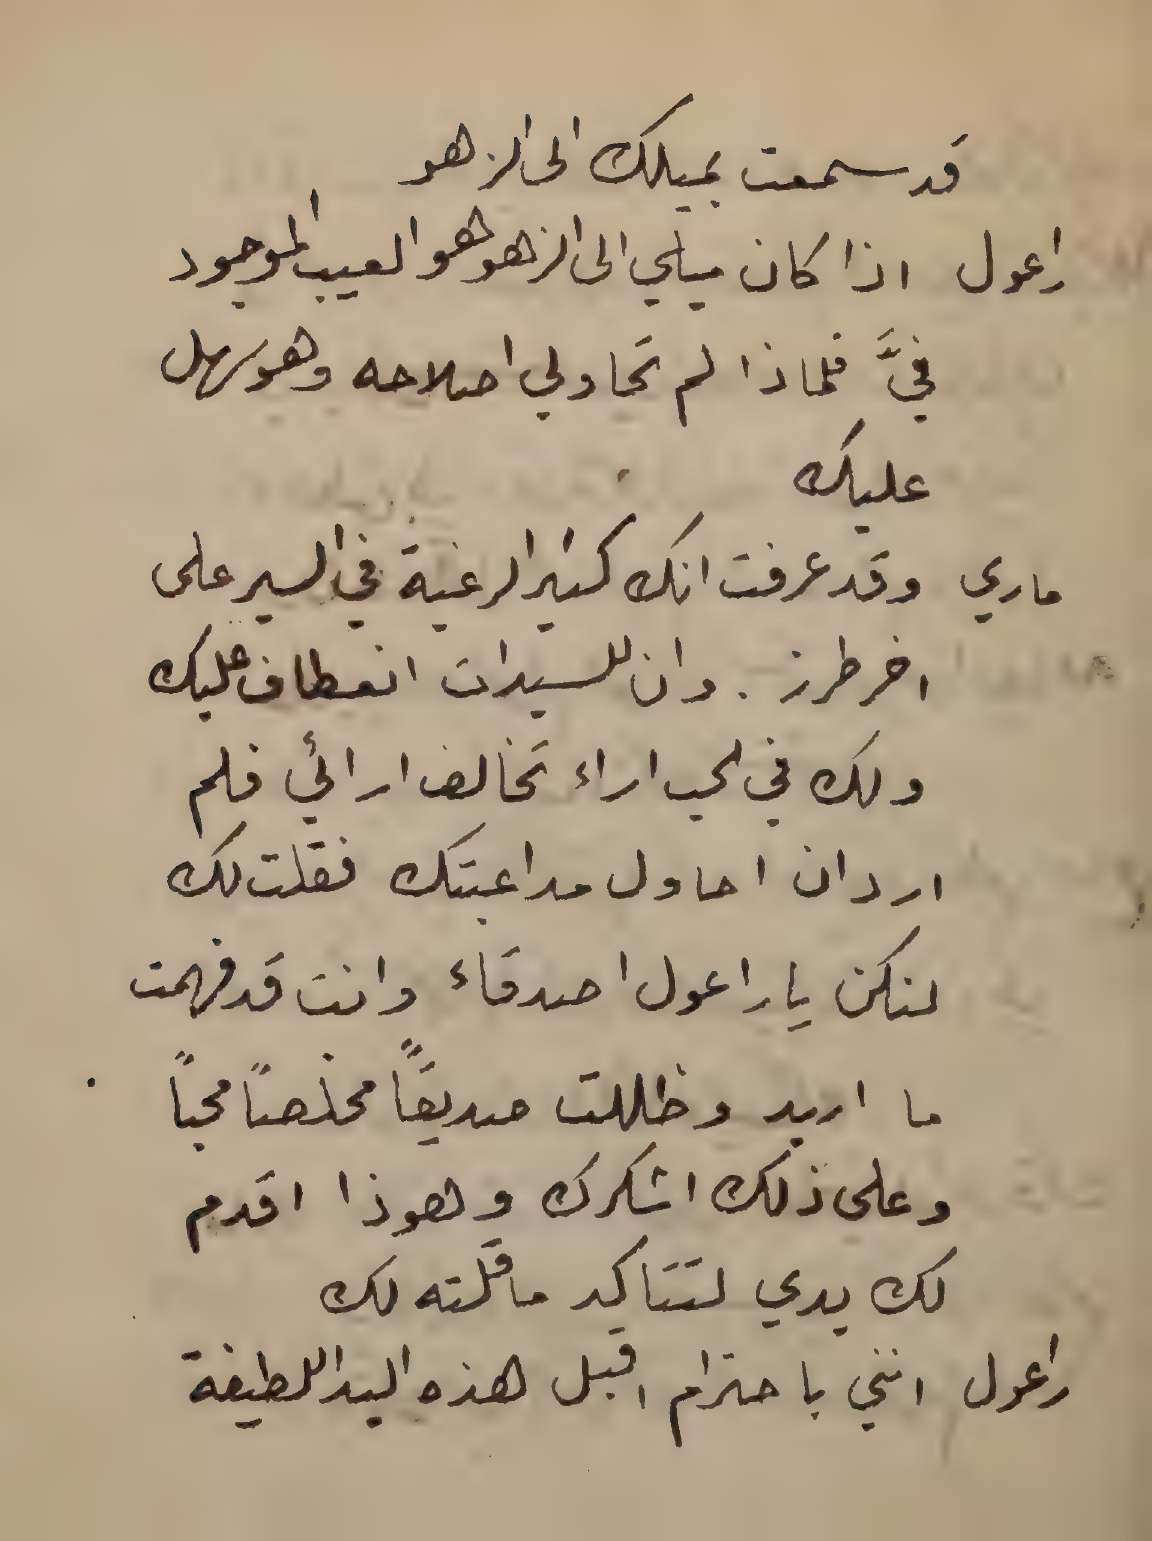 قد سمعت بميلك الى الزهو
راعول اذا كان ميلي الى الزهو هو العيب الموجود
فيَّ فلماذا لم تحاولي اصلاحه وهو سهل
عليك
ماري وقد عرفت انك كثير الرغبة في السير على
اخر طرز . وان للسيدات انعطاف عليك
ولك في الحب اراء تخالف ارائي فلم
ارد ان احاول مداعبتك فقلت لك
لنكن يا راعول اصدقاء وانت قد فهمت
ما اريد وظللت صديقاً مخلصاً محباً
وعلى ذلك اشكرك وهوذا اقدم
لك يدي لتتاكد ما قلته لك
راعول انني باحترام اقبل هذه اليد اللطيفة